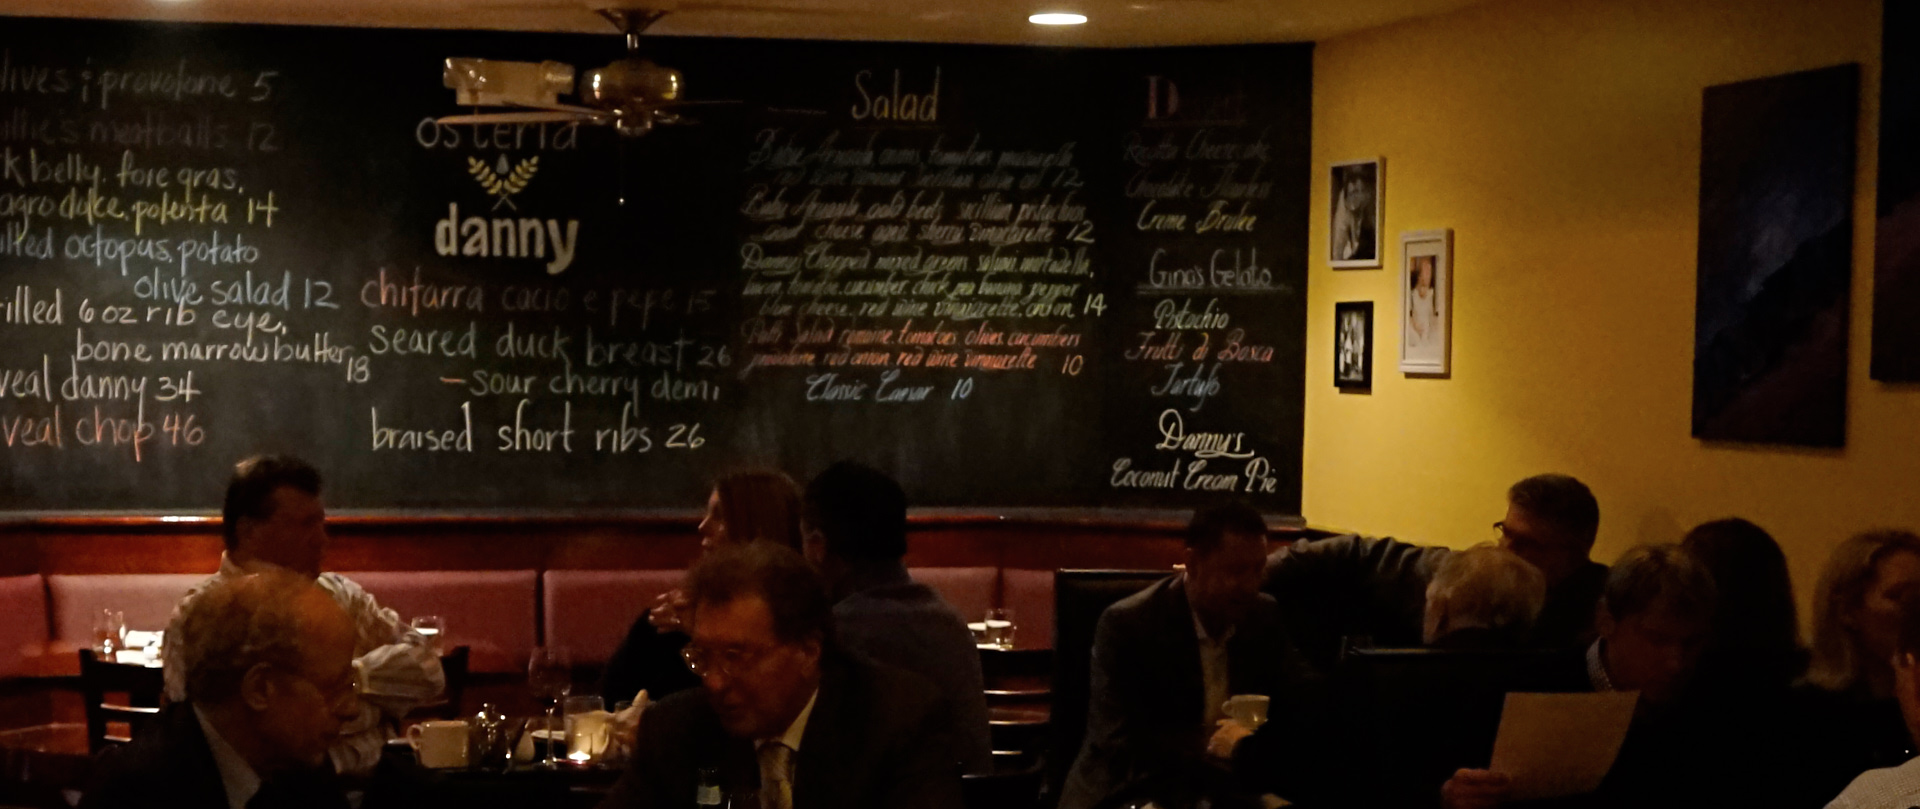 lives & provolone 5
illie's meatballs 12
k belly, foie gras,
agro dulce, polenta 14
illed octopus, potato
olive salad 12
rilled 6 oz rib eye,
bone marrow butter 18
veal danny 34
veal chop 46
osteria
danny
chitarra cacio e pepe 15
seared duck breast 26
- sour cherry demi
braised short ribs 26
Salad
Baby Arugula tomatoes
red wine sicilian olive oil 12
Baby Arugula, gold beets, sicillian pistachios,
goat cheese aged sherry vinaigrette 12
Danny Chopped mixed greens, salumi, mortadella,
bacon, tomato, cucumber, chick pea banana pepper
blue cheese, red wine vinaigrette, onion 14
Salad romaine, tomatoes, olives, cucumbers
provolone, red onion, red wine vinaigrette 10
Classic Caesar 10
Ricotta Cheesecake
Chocolate
Creme Brulee
Gina's Gelato
Pistachio
Frutti di Bosca
Tartufo
Danny's
Coconut Cream Pie